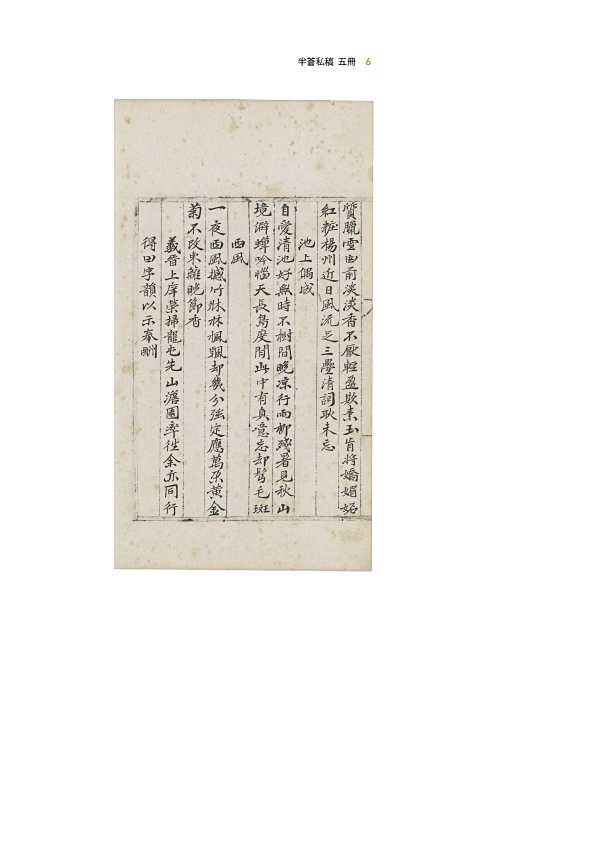 半菴私稿 五冊 6
質臘雪西前淡淡香不厭輕盈欺素玉肯將嬌媚
紅粧楊州近日風流乏三疊清詞耿未忘
池上偶成
自愛清池好無時不樹間晚凉行雨柳殘暑見秋山
境僻蟬吟惱天長鳥度閒此中有真意忘却鬢毛斑
西風
一夜西風撼竹牀林楓飄却幾分強定應萬原黃金
菊不改東籬晚節香
羲晋上庠榮掃龍屯先山潛圃率徃余亦同行
得田字韻以示奉酬